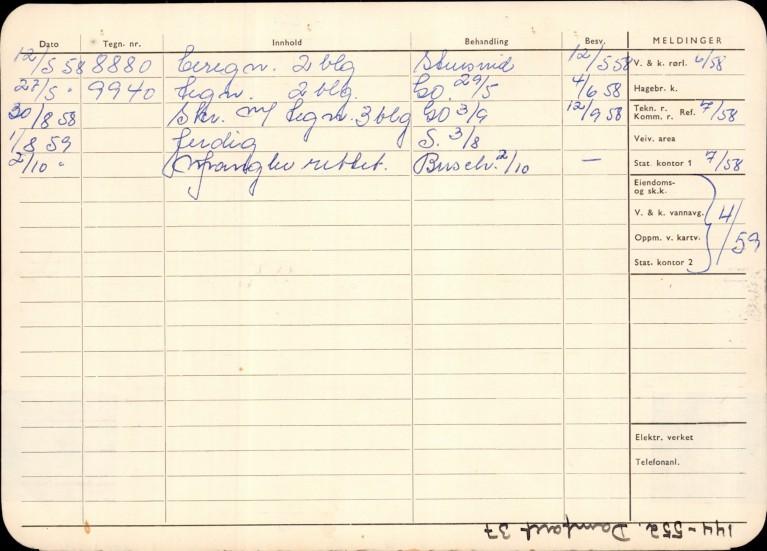 Dato Tegn. nr. Innhold Behandling Besv. MELDINGER
12/5 58 8880 beregn. 2 blg 12/5 58 V. & k. rørl. 6/58
27/5 " 9940 tegn. 2 blg. GO. 29/5 4/6 58 Hagebr. k.
30/8 58 Skr. m/ tegn. 3 blg GO 3/9 12/9 58 Tekn. r. Komm. r. Ref. 7/58
1/8 59 ferdig S. 3/8 Veiv. area
2/10 " mangler rettet. Buschv. 2/10 — Stat. kontor 1 7/58
Eiendoms- og sk.k.
V. & k. vannavg. 4/59
Oppm. v. kartv.
Stat. kontor 2
Elektr. verket
Telefonanl.
144-552. Damfaret 37